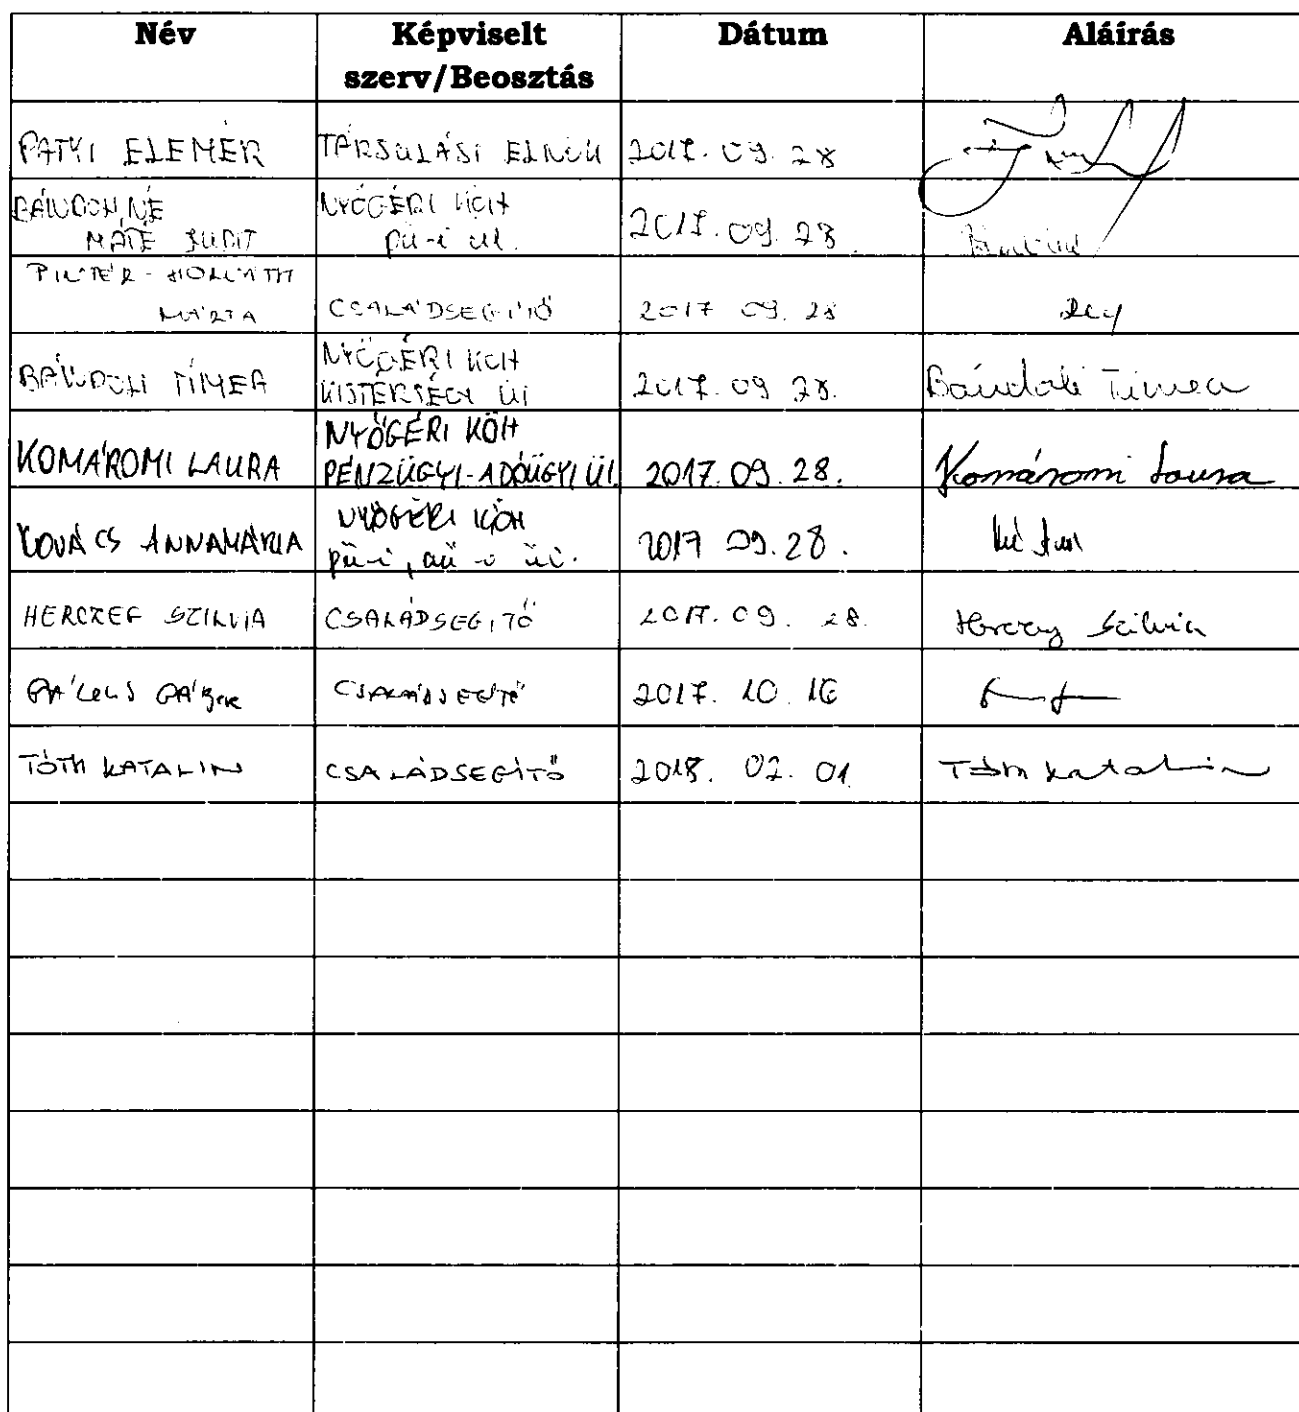 Név
Képviselt
szerv/Beosztás
Dátum
Aláírás
PATYI ELEMÉR
TÁRSULÁSI ELNÖK
2017. 09. 28
MÁTÉ JUDIT
NYŐGÉRI KÖH
pü-i üi.
2017. 09. 28.
PINTÉR-HORVÁTH
MÁRTA
CSALÁDSEGÍTŐ
2017 09. 28
TÍMEA
NYŐGÉRI KÖH
KISTÉRSÉGI ÜI
2017. 09 28.
Tímea
KOMÁROMI LAURA
NYŐGÉRI KÖH
PÉNZÜGYI-ADÓÜGYI ÜI.
2017. 09. 28.
Komáromi Laura
KOVÁCS ANNAMÁRIA
NYŐGÉRI KÖH
pü-i, aü-i üi.
2017 09. 28.
HERCZEG SZILVIA
CSALÁDSEGÍTŐ
2017. 09. 28.
Herczeg Szilvia
CSALÁDSEGÍTŐ
2017. 10. 16
TÓTH KATALIN
CSALÁDSEGÍTŐ
2018. 02. 01.
Tóth Katalin